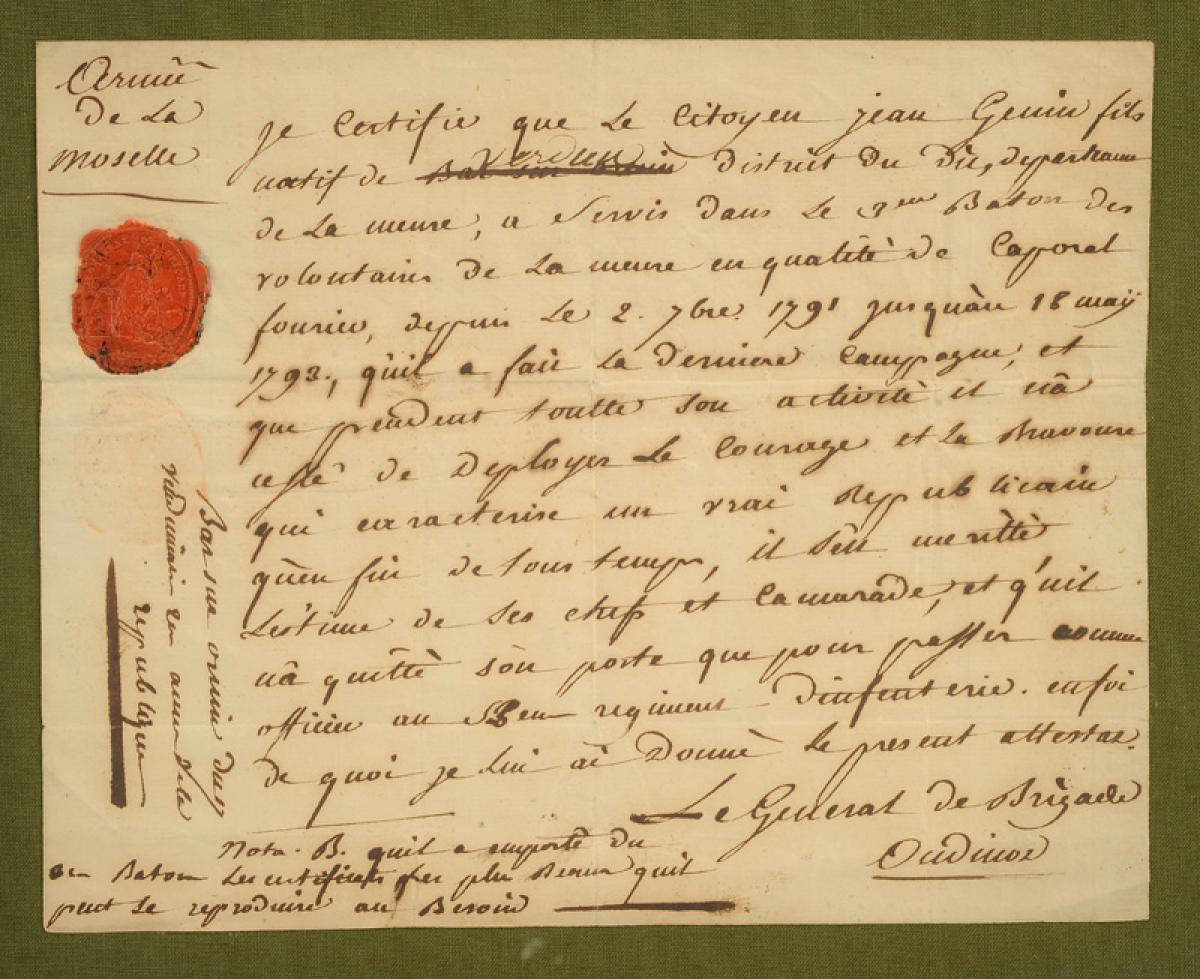 Armée
de La
Moselle
je Certifie que Le Citoyen jean Genin fils
natif de Verdun district du dit, departeme
de La meuse, a Servis dans Le 3eme Baton des
volontaires de La meuse en qualité de Caporal
fourier, depuis Le 2. 7bre. 1791 jusquàu 18 maÿ
1793., qúil a fait La derniere Campagne, et
que pendent toutte son activité il nâ
cessé de Deployer Le Courage et La Bravoure
qui caracterise un vrai Republicain
qùen fin de tous temps, il sén meritté
Léstime de Ses chefs et Camarade, et qúil
nâ quittè son poste que pour passer comme
officier au regiment dinfenterie. en foi
de quoi je Lui ài Donnè Le present attestaz.
Le General de Brigade
Oudinot
Nota. B. quil a emporté du
Baton Les certificats Les plus Beaux quil
peut Se reproduire au Besoin
Bar sur ornin du 7
vendemiaire 2en annee de la
republique